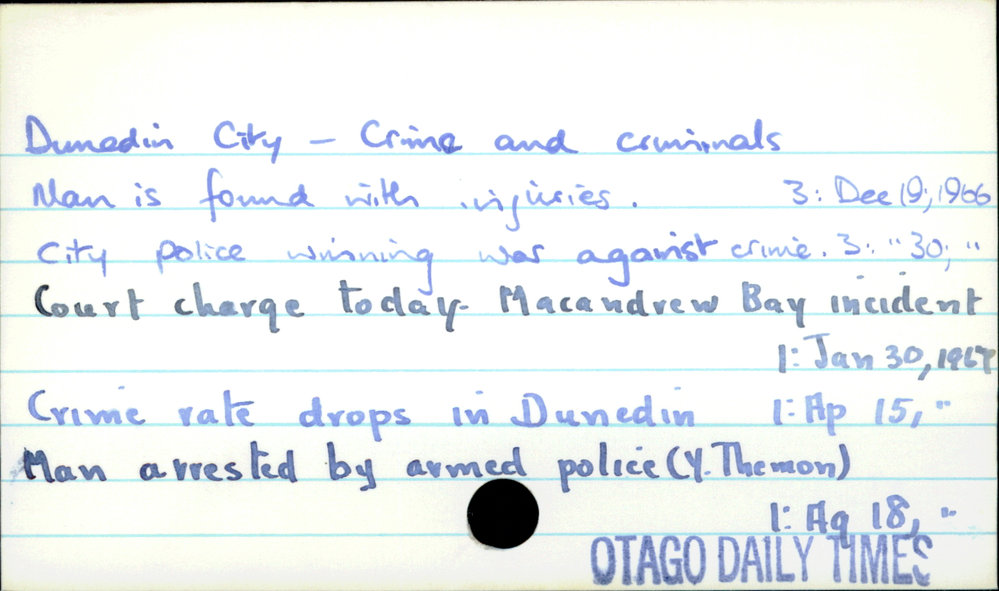 Dunedin City – Crime and criminals
Man is found with injuries. 3: Dec 19, 1966
City police winning war against crime. 3: " 30, "
Court charge today- Macandrew Bay incident
1: Jan 30, 1967
Crime rate drops in Dunedin 1: Ap 15, "
Man arrested by armed police (Y. Themon)
1: Ag 18, "
OTAGO DAILY TIMES